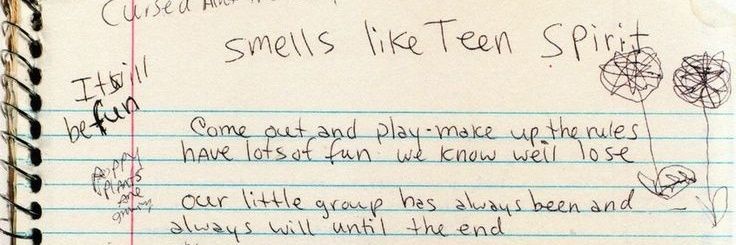 Cursed
smells like Teen Spirit
It will
be fun
Come out and play - make up the rules
have lots of fun we know we'll lose
poppy
plants
are
our little group has always been and
always will until the end